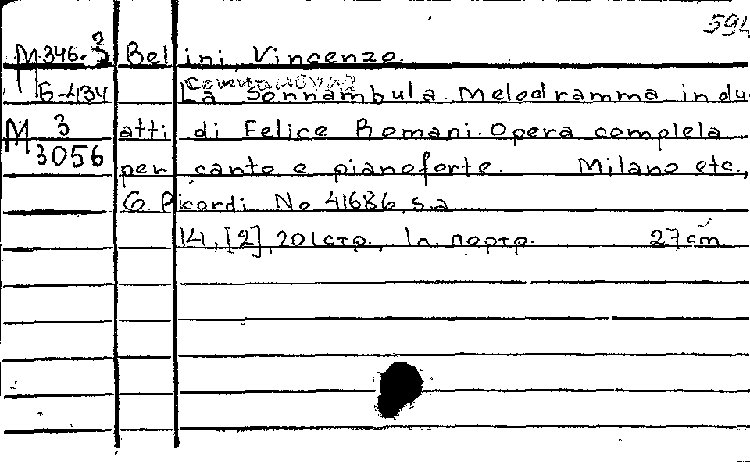 594
M 346-3 Bellini, Vincenzo.
Б-434 La Sonnambula. Melodramma in du
M 3 atti di Felice Romani. Opera completa
3056 per canto e pianoforte. Milano etc.,
G. Ricordi. No 41686, s.a.
14, [2], 201 стр., 1л портр. 27 cm